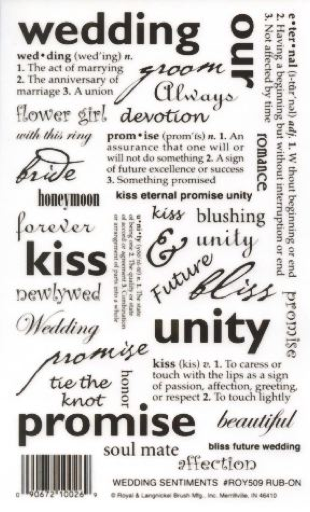 wedding
wed•ding (wed'ing) n.
1. The act of marrying
2. The anniversary of
marriage 3. A union
groom
our
e•ter•nal (i-tûr'nəl) adj. 1. W thout beginning or end
2. Having a beginning but without interruption or end
3. Not affected by time
Always
flower girl
devotion
with this ring
prom•ise (prom'is) n. 1. An
assurance that one will or
will not do something 2. A sign
of future excellence or success
3. Something promised
romance
bride
honeymoon
kiss eternal promise unity
forever
kiss
blushing
& unity
kiss
Future
bliss
newlywed
promise
Wedding
unity
promise
kiss (kis) v. 1. To caress or
touch with the lips as a sign
of passion, affection, greeting,
or respect 2. To touch lightly
tie the
knot
honor
promise
beautiful
soul mate
bliss future wedding
affection
0 90672 10026 9
WEDDING SENTIMENTS #ROY509 RUB-ON
© Royal & Langnickel Brush Mfg., Inc. Merrillville, IN 46410